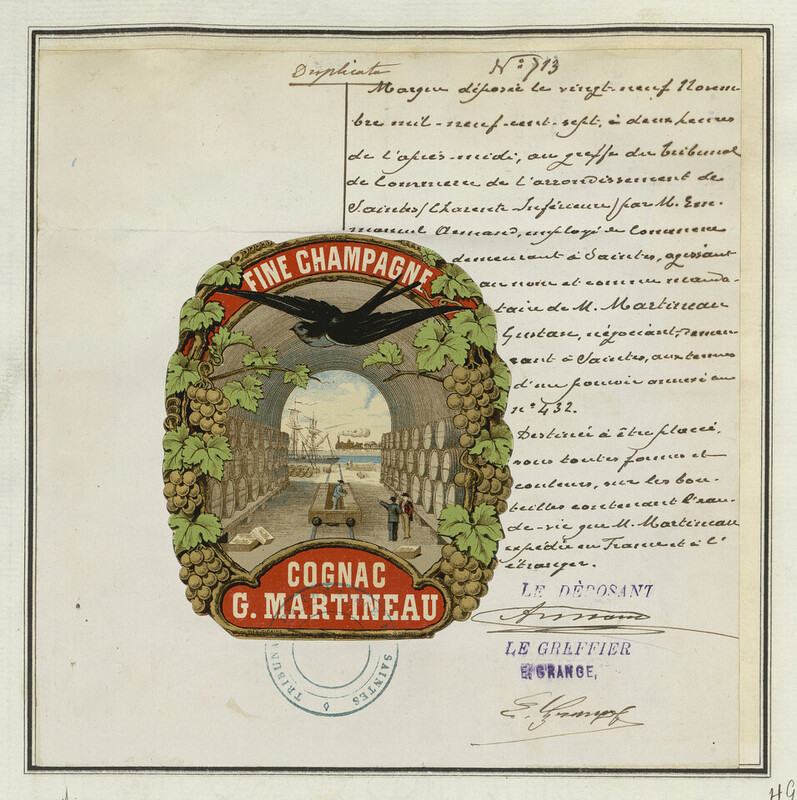 Duplicata
N° 713
Marque déposée le vingt-neuf Novem
bre mil-neuf-cent-sept, à deux heures
de l'après-midi, au greffe du Tribunal
de Commerce de l'arrondissement de
Saintes (Charente Inférieure) par M. Em
manuel Armand, employé de Commerce
demeurant à Saintes, agissant
au nom et comme manda-
taire de M. Martineau
Gustave, négociant, demeu
rant à Saintes, aux termes
d'un pouvoir annexé au
n° 432.
Destinée à être placée,
sous toutes formes et
couleurs, sur les bou-
teilles contenant l'eau-
de-vie que M. Martineau
expédie en France et à l'
étranger.
FINE CHAMPAGNE
COGNAC
G. MARTINEAU
LE DÉPOSANT
Armand
LE GREFFIER
E. GRANGE,
TRIBUNAL
SAINTES